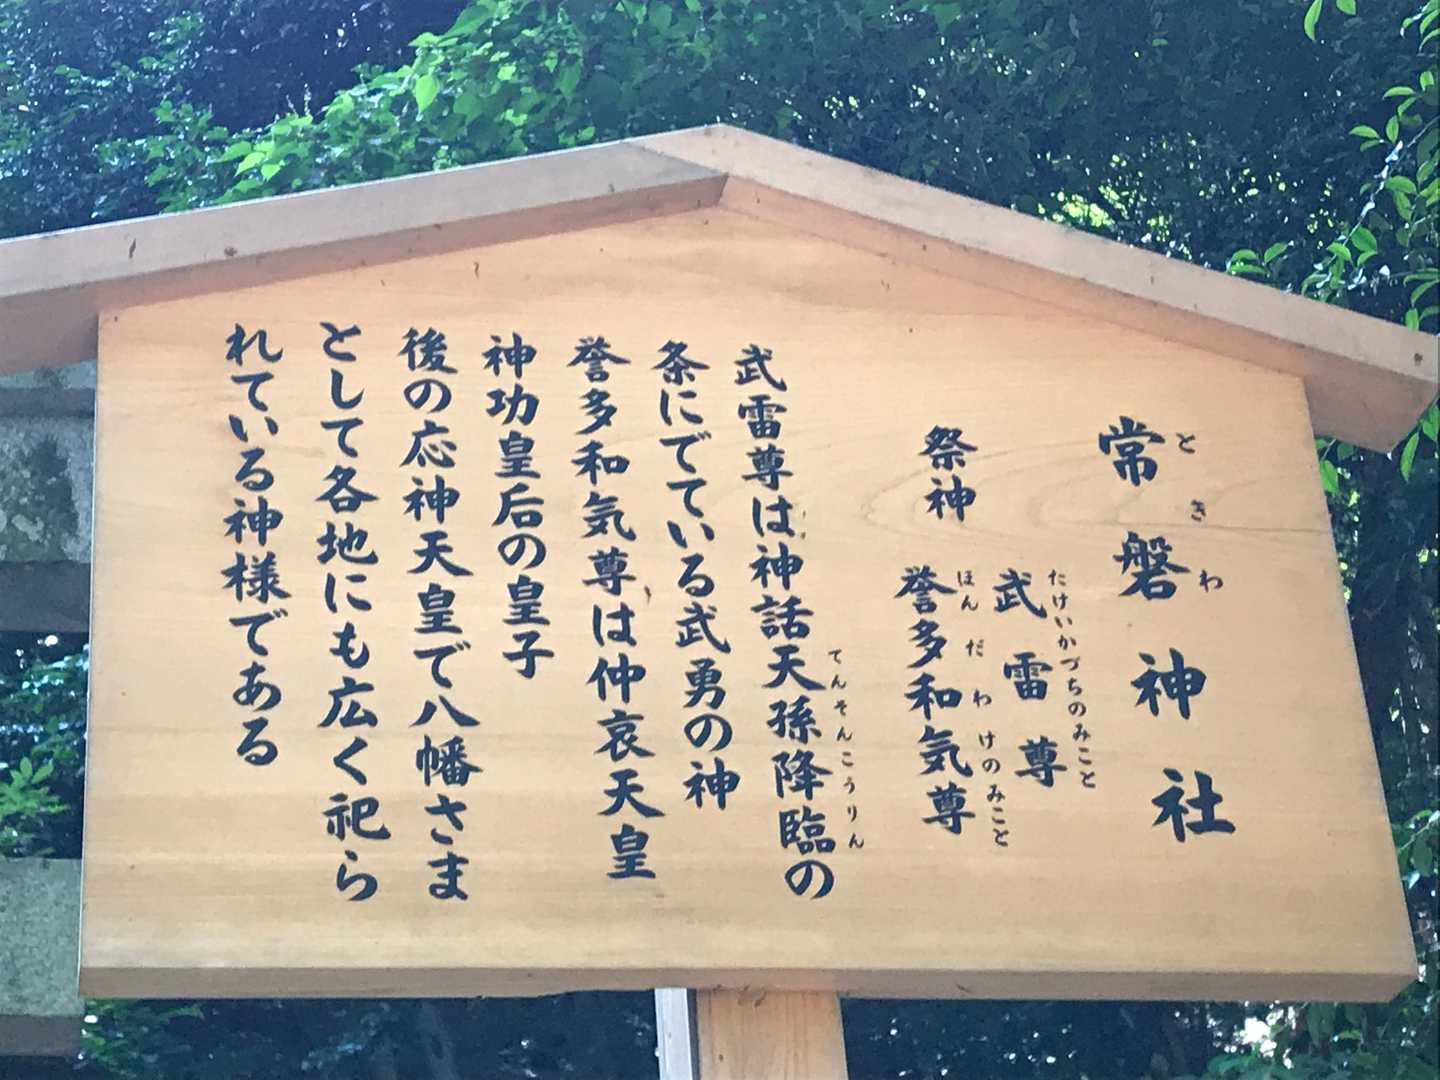 常磐神社
ときわ
祭神
武雷尊
たけいかづちのみこと
誉多和気尊
ほんだわけのみこと
武雷尊は神話天孫降臨の
てんそんこうりん
条にでている武勇の神
誉多和気尊は仲哀天皇
神功皇后の皇子
後の応神天皇で八幡さま
として各地にも広く祀ら
れている神様である